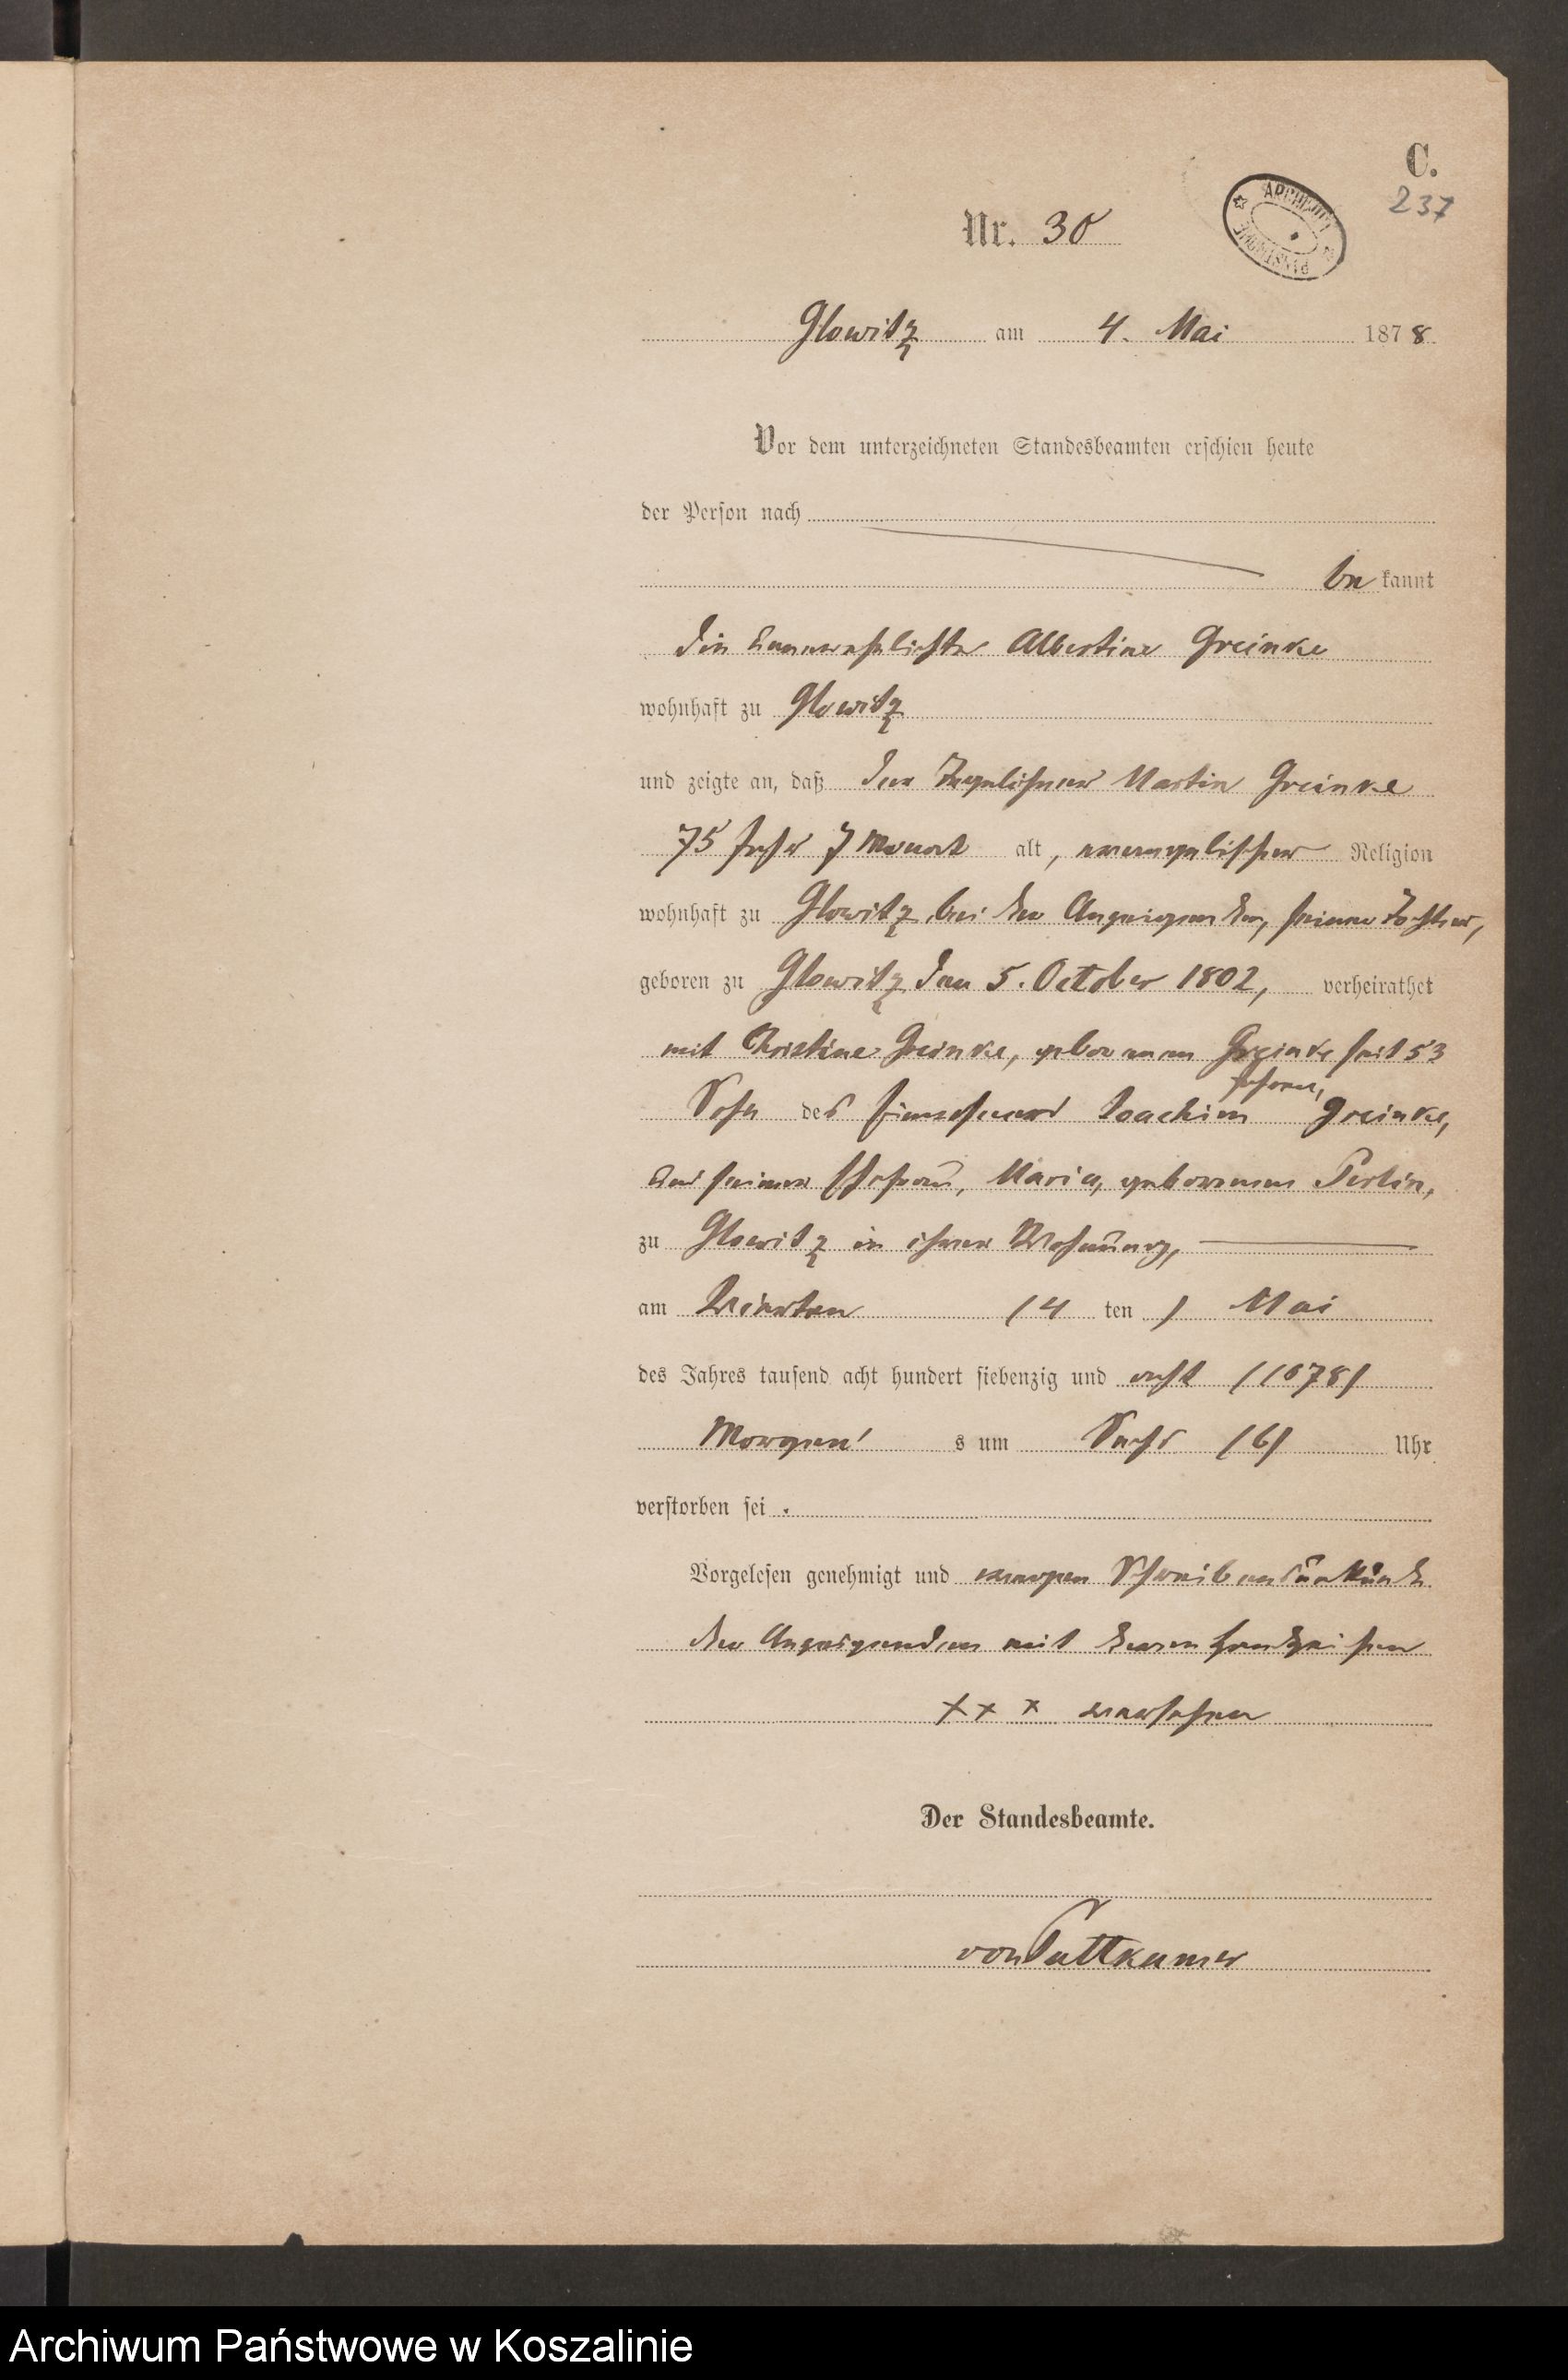 C.
237
ARCHIWUM PAŃSTWOWE
Nr. 30
Glowitz am 4. Mai 1878
Vor dem unterzeichneten Standesbeamten erschien heute
der Person nach
be kannt
die unverehelichte Albertine Greinke
wohnhaft zu Glowitz
und zeigte an, daß der Tagelöhner Martin Greinke
75 Jahr 7 Monat alt, evangelischer Religion
wohnhaft zu Glowitz bei der Anzeigenden, seiner Tochter,
geboren zu Glowitz den 5. October 1802, verheirathet
mit Christine Greinke, geborenen Greinke seit 53
Jahren,
Sohn des Joachim Greinke,
und seiner Ehefrau, Maria, geborenen Perlin,
zu Glowitz in ihrer Wohnung,
am Vierten (4 ten ) Mai
des Jahres tausend acht hundert siebenzig und acht (1878)
Morgen s um Sechs (6) Uhr
verstorben sei.
Vorgelesen genehmigt und wegen Schreibensunkunde
der Anzeigenden mit deren Handzeichen
xxx versehen
Der Standesbeamte.
von Puttkamer
Archiwum Państwowe w Koszalinie